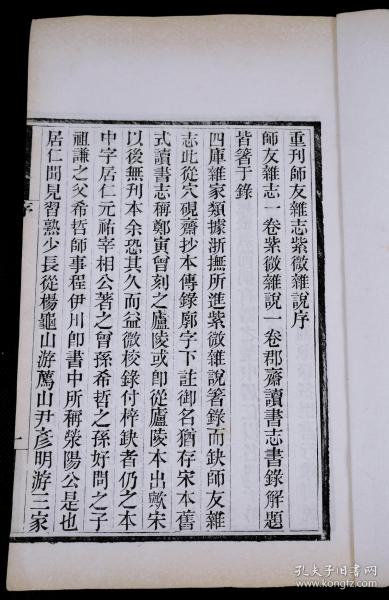 重刊師友雜志紫微雜說序
師友雜志一卷紫微雜說一卷郡齋讀書志書錄解題
皆著于錄
四庫雜家類據浙撫所進紫微雜說著錄而缺師友雜
志此從穴硯齋抄本傳錄廓字下註御名猶存宋本舊
式讀書志稱鄭寅曾刻之廬陵或即從廬陵本出歟宋
以後無刊本余恐其久而益微校錄付梓缺者仍之本
中字居仁元祐宰相公著之曾孫希哲之孫好問之子
祖謙之父希哲師事程伊川卽書中所稱滎陽公是也
居仁聞見習熟少長從楊龜山游薦山尹彥明游三家
序
一
孔夫子旧书网
www.kongfz.com